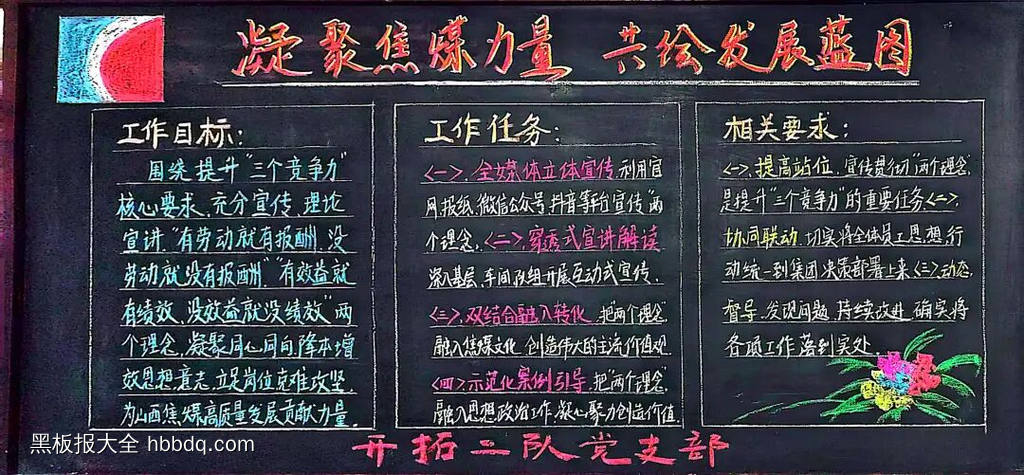 凝聚焦煤力量 共绘发展蓝图
工作目标:
围绕提升"三个竞争力"
核心要求,充分宣传、理论
宣讲,"有劳动就有报酬,没
劳动就没有报酬""有效益就
有绩效,没效益就没绩效"两
个理念,凝聚同心同向,降本增
效思想意志,立足岗位克难攻坚,
为山西焦煤高质量发展贡献力量.
工作任务:
<一>,全媒体立体宣传,利用官
网、报纸、微信公众号、抖音等平台宣传"两
个理念,<二>,穿透式宣讲解读,
深入基层,车间、队组开展互动式宣传,
<三>,双结合融入转化,把两个理念
融入焦煤文化,创造伟大的主流价值观.
<四>示范化案例引导,把"两个理念,
融入思想政治工作,凝心聚力创造价值
相关要求:
<一>,提高站位,宣传贯彻"两个理念,
是提升"三个竞争力"的重要任务<二>,
协同联动,切实将全体员工思想、行
动统一到集团决策部署上来<三>动态
督导,发现问题,持续改进,确实将
各项工作落到实处.
开拓二队党支部
黑板报大全 hbbdq.com